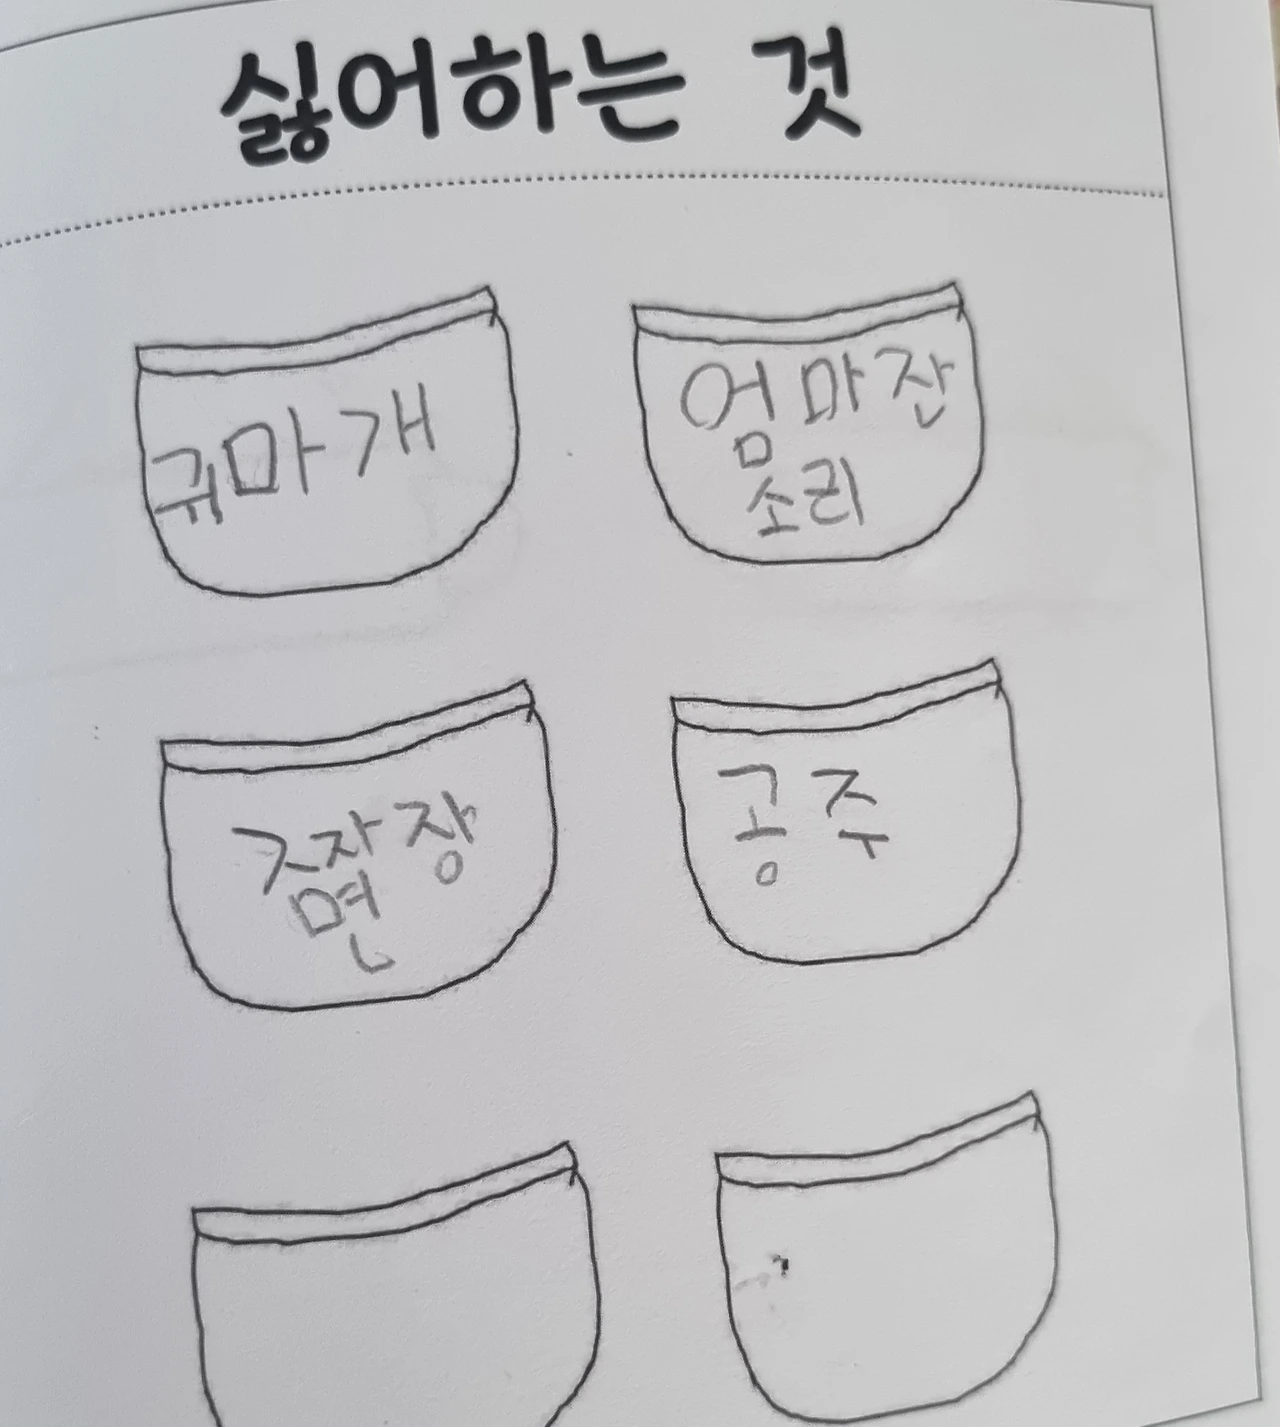 싫어하는 것
귀마개
엄마잔
소리
짜장
면
공주